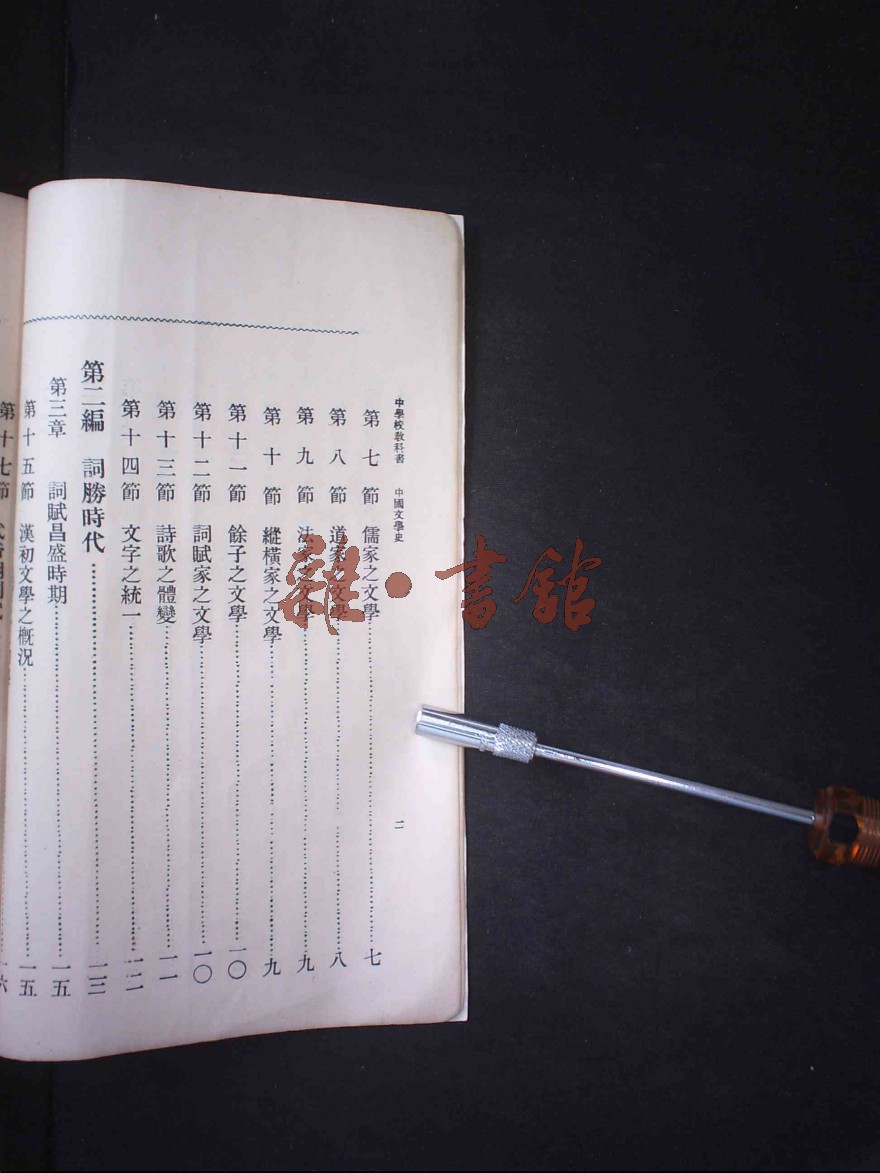 中學校教科書 中國文學史 二
第七節 儒家之文學 七
第八節 道家之文學 八
第九節 法家之文學 九
第十節 縱橫家之文學 九
第十一節 餘子之文學 一〇
第十二節 詞賦家之文學 一〇
第十三節 詩歌之體變 一一
第十四節 文字之統一 一二
第二編 詞勝時代 一三
第三章 詞賦昌盛時期 一五
第十五節 漢初文學之概況 一五
第十七節 一六
雜·書館